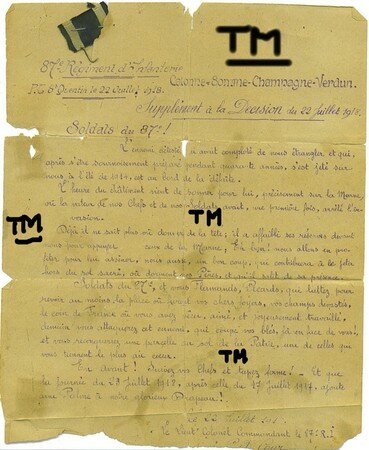 TM
87e Régiment d'Infanterie
P.C. St Quentin le 22 Juillet 1918.
Colonne-Somme-Champagne-Verdun.
Supplément à la Décision du 22 Juillet 1918.
Soldats du 87e!
L'ennemi détesté avait comploté de nous étrangler et qui,
après s'être sournoisement préparé pendant quarante années, s'est jeté sur
nous à l'été de 1914, est au bord de la défaite.
L'heure du châtiment vient de sonner pour lui, précisement sur la Marne,
où la valeur de nos Chefs et de nos Soldats avait, une première fois, arrêté l'in-
vasion.
TM
TM
Déjà il ne sait plus où donner de la tête; il a affaibli ses réserves devant
nous pour appuyer ceux de la Marne. Eh bien! nous allons en pro-
fiter pour lui assener, nous aussi, un bon coup, qui contribuera à le jeter
hors du sol sacré, où dorment nos Pères, et qu'il salit de sa présence.
Soldats du 87e, et vous Flamands, Picards, qui luttez pour
revoir au moins la place où furent vos chers foyers, vos champs dévastés,
le coin de France où vous avez joyeusement travaillé,
demain vous attaquerez cet ennemi, qui coupe vos blés, là en face de vous!
et vous reconquerrez une parcelle du sol de la Patrie, une de celles qui
vous tiennent le plus au cœur.
TM
En avant! Suivez vos Chefs et tapez ferme! Et que
la journée du 23 Juillet 1918, après celle du 17 Juillet 1914, ajoute
une Palme à notre glorieux Drapeau!
Le 22 Juillet 191
Le Lieut Colonel Commandant le 87e R.I.